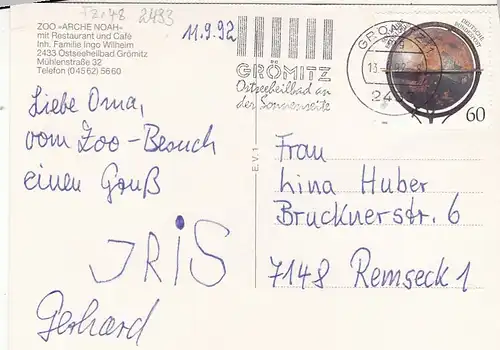 TZ, 48 2433
ZOO »ARCHE NOAH«
mit Restaurant und Café
Inh. Familie Ingo Wilhelm
2433 Ostseeheilbad Grömitz
Mühlenstraße 32
Telefon (04562) 5660
11.9.92
GRÖMITZ
Ostseeheilbad an
der Sonnenseite
GRÖMITZ 1
DEUTSCHE BUNDESPOST
60
Liebe Oma,
vom Zoo-Besuch
einen Gruß
IRIS
Gerhard
E.V. 1
Frau
Lina Huber
Brucknerstr. 6
7148 Remseck 1